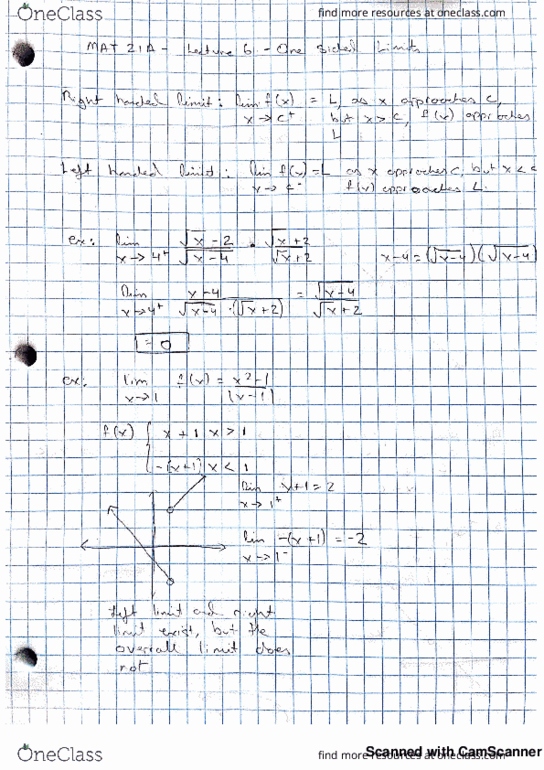 OneClass
find more resources at oneclass.com
MAT 21A - Lecture 6 - One Sided Limits
Right handed limit: lim f(x) = L, as x approaches c,
x → c⁺ but x > c, f(x) approaches
L
Left handed limit: lim f(x) = L as x approaches c, but x < c
x → c⁻ f(x) approaches L.
ex: lim √x - 2 / √x-4 · √x + 2 / √x + 2
x → 4⁺
x-4 = (√x-4)(√x-4)
lim x-4 / √x-4 · (√x + 2) = √x-4 / √x + 2
x → 4⁺
= 0
ex. lim f(x) = x²-1 / |x-1|
x → 1
f(x) { x + 1 x > 1
-(x+1) x < 1
lim x+1 = 2
x → 1⁺
lim -(x+1) = -2
x → 1⁻
Left limit and right
limit exist, but the
overall limit does
not
OneClass
find more resources at oneclass.com
Scanned with CamScanner